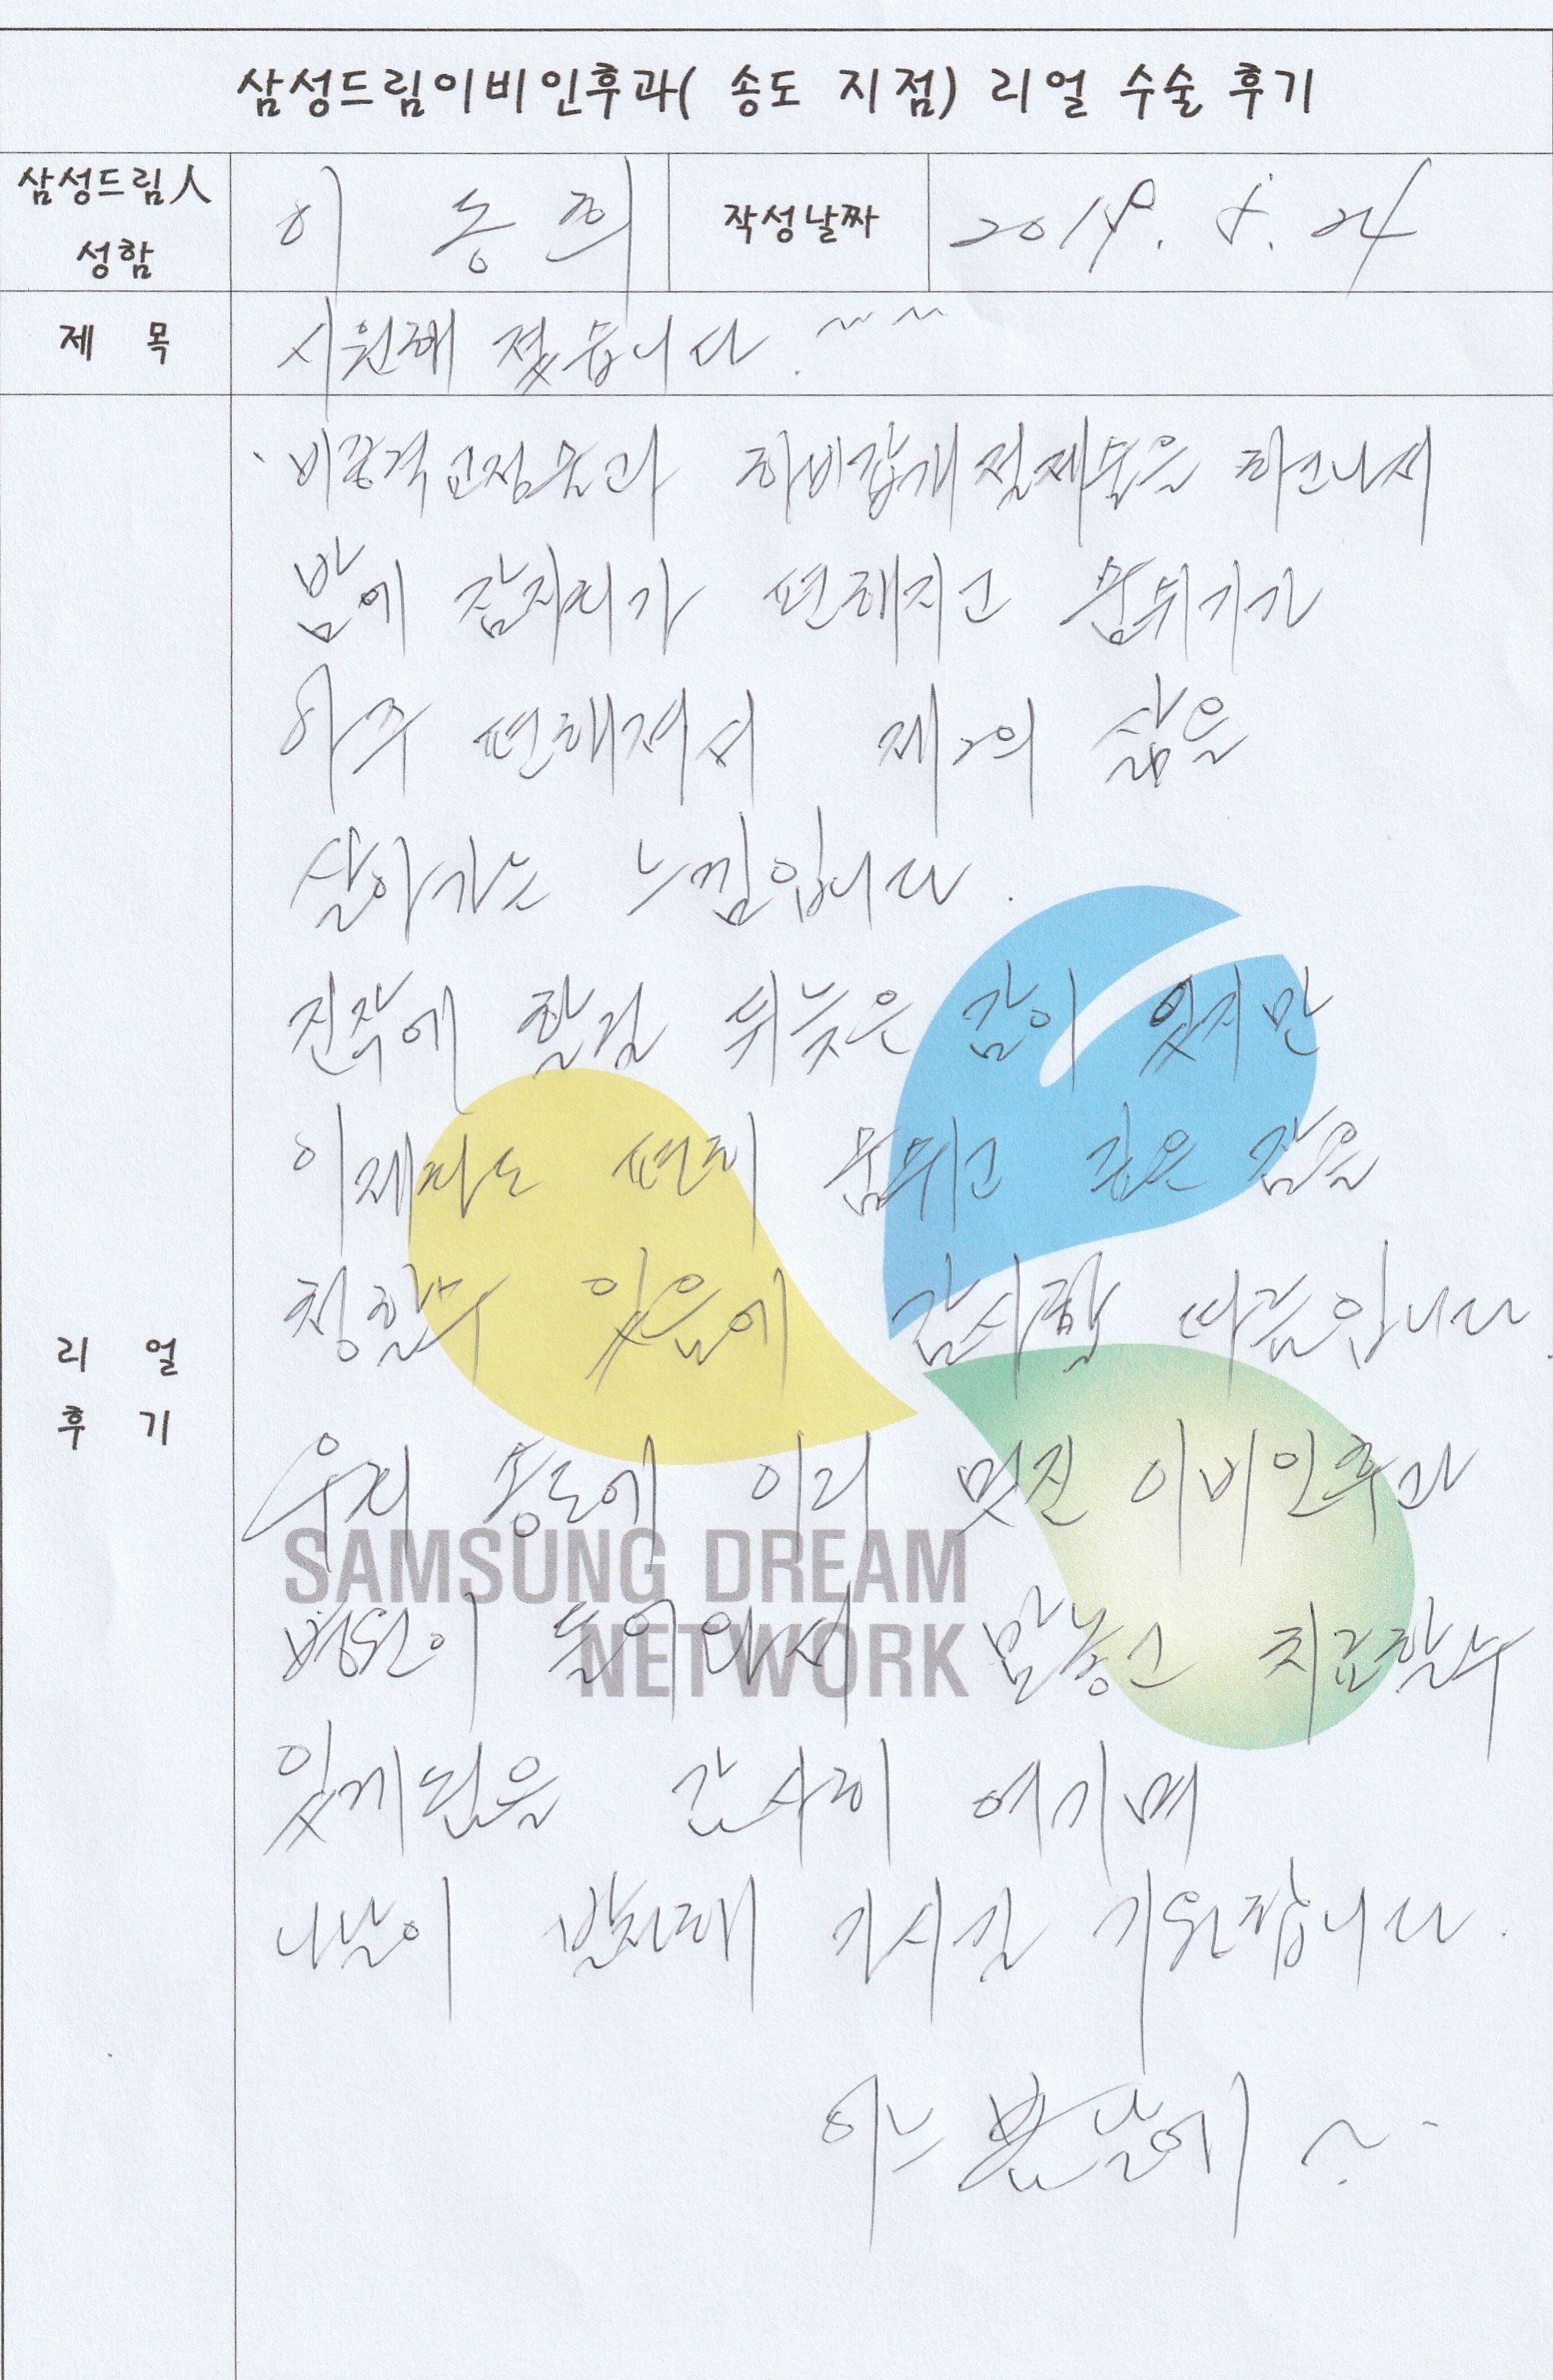 삼성드림이비인후과( 송도 지점) 리얼 수술 후기
삼성드림人
성함
이 동희
작성날짜
2019. 5. 24
제 목
시원해 졌읍니다. ~ ~
비중격교정술과 하비갑개절제술을 하고나서
밤에 잠자리가 편해지고 숨쉬기가
아주 편해져서 제2의 삶을
살아가는 느낌입니다.
진작에 할걸 뒤늦은 감이 있지만
이제라도 편히 숨쉬고 깊은 잠을
청할수 있음에 감사할 따름입니다.
우리 송도에 이리 멋진 이비인후과
병원이 들어와서 맘놓고 치료할수
있게됨을 감사히 여기며
나날이 발전해 가시길 기원합니다.
어느 봄날에 ~
리 얼
후 기
SAMSUNG DREAM
NETWORK